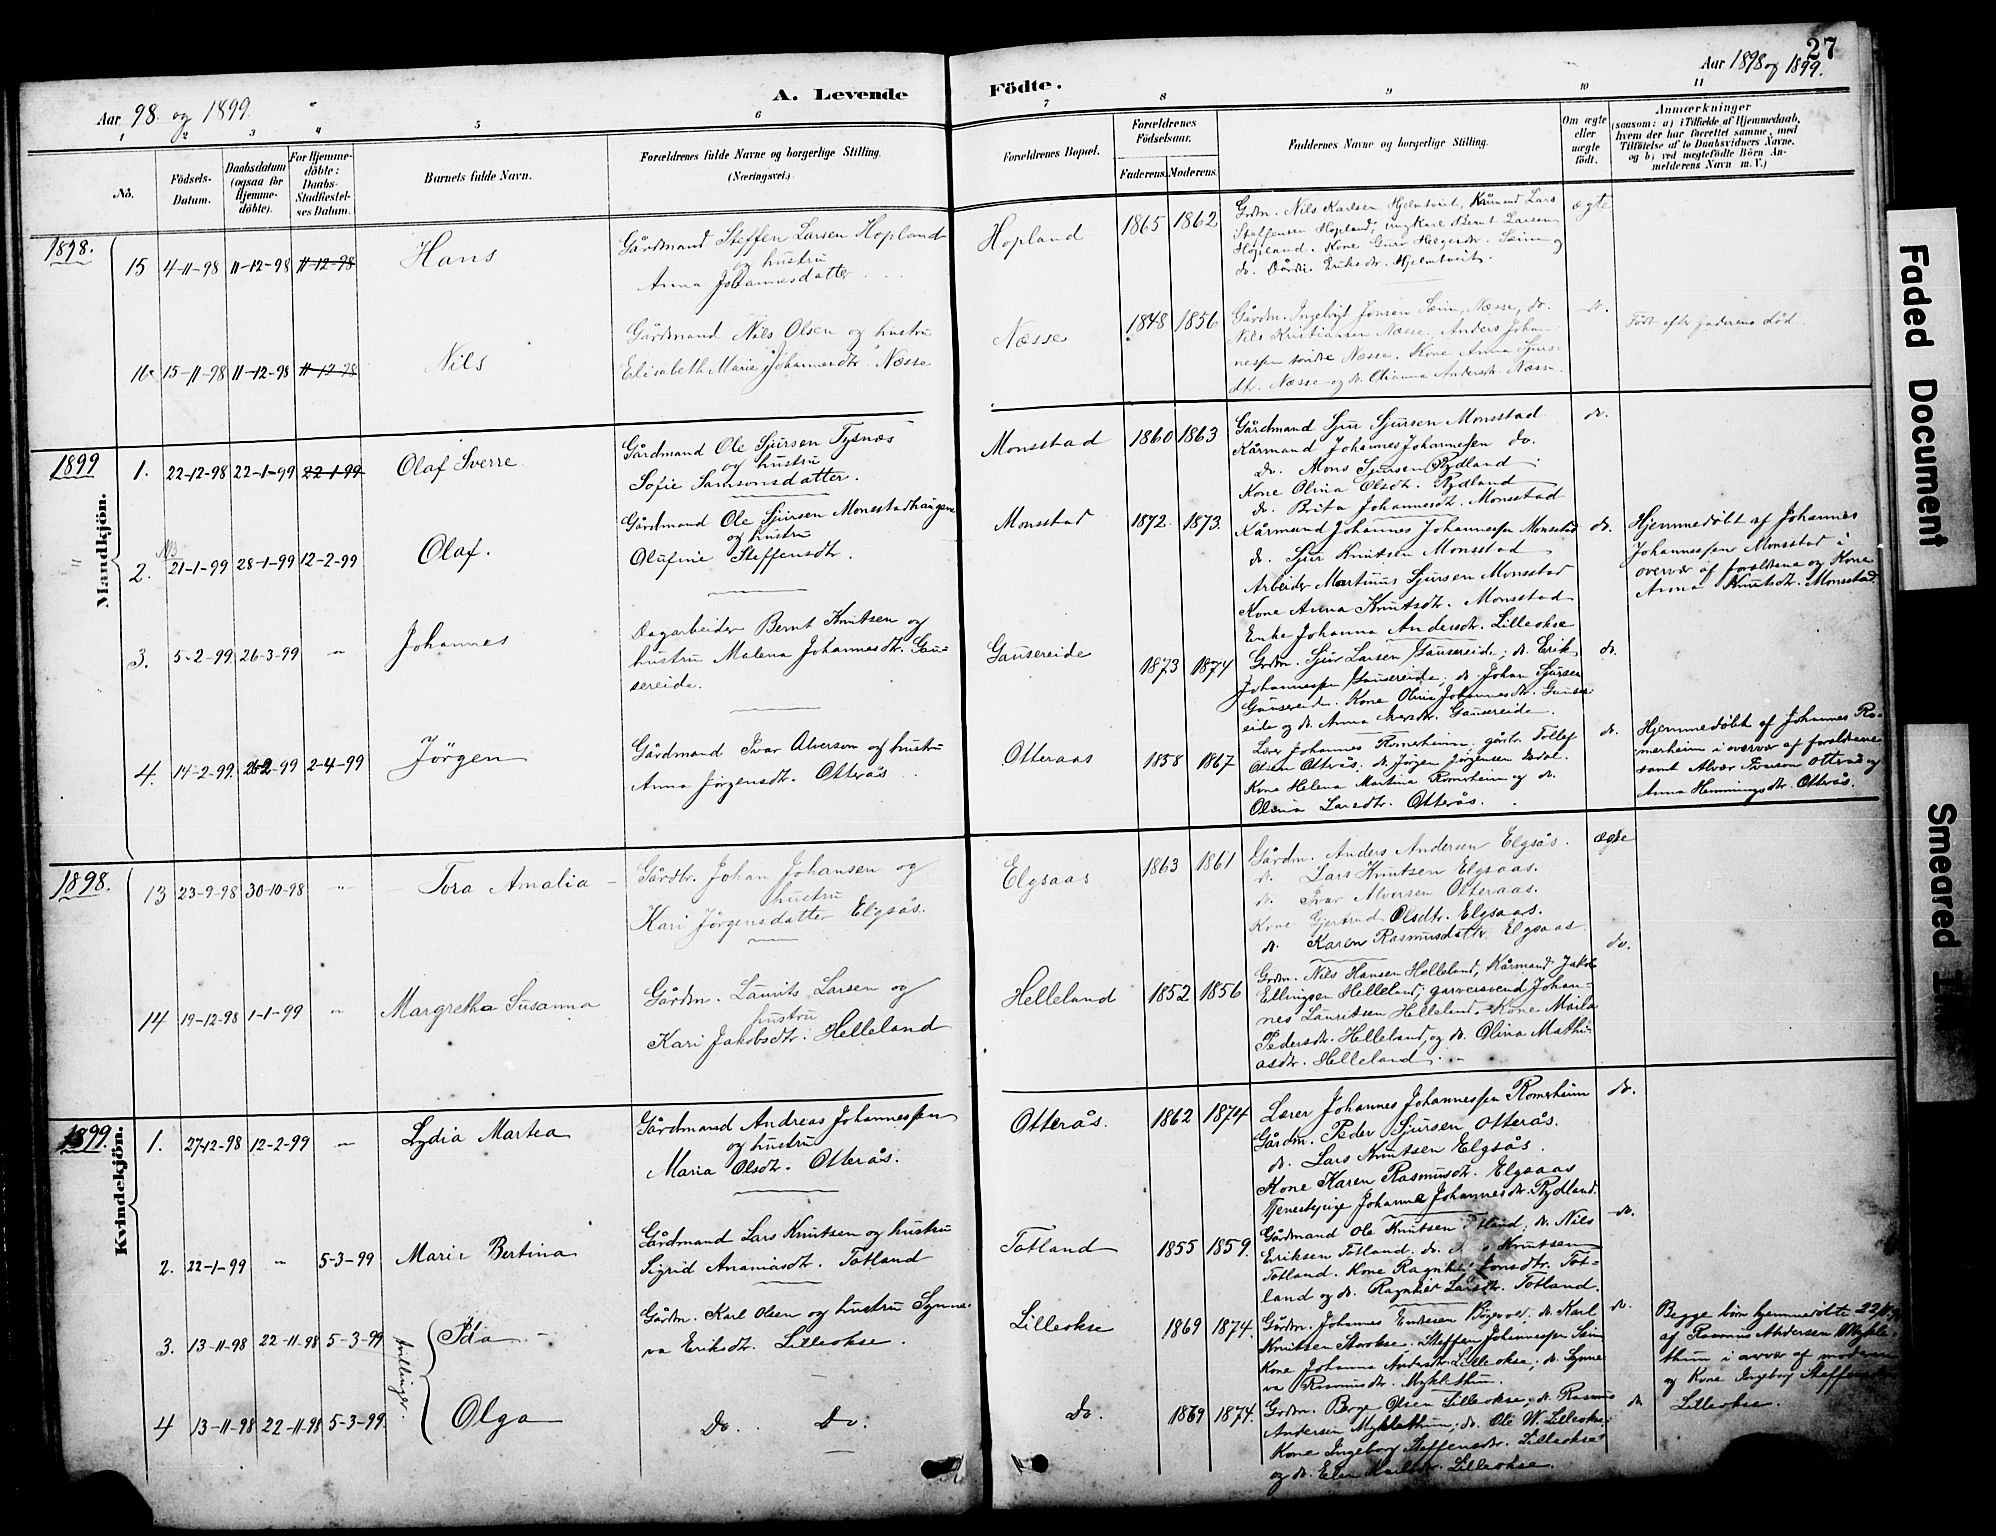 27
Aar 98 og 1899.
A. Levende
Födte.
Aar 1898 og 1899.
1 2 3 4 5 6 7 8 9 10 11
No.
Födsels-Datum.
Daabsdatum (ogsaa för Hjemme-döbte).
For Hjemme-döbte: Daabs-Stadfæstel-ses Datum.
Barnets fulde Navn.
Forældrenes fulde Navne og borgerlige Stilling.
(Næringsvei.)
Forældrenes Bopæl.
Forældrenes Födselsaar.
Faderens. Moderens.
Faddernes Navne og borgerlige Stilling.
Om ægte eller uægte födt.
Anmærkninger
(saasom: a) i Tilfælde af Hjemmedaab,
hvem der har forrettet samme, med
Tilföielse af to Daabsvidners Navne,
og b) ved uægtefödte Börn An-
melderens Navn m. V.)
1898.
15 4-11-98 11-12-98 11-12-98 Hans
Gårdmand Steffen Larsen Hopland
og hustru
Anna Johannesdatter
Hopland 1865 1862
Grdm. Nils Karlsen Hjelmtveit, Kårmand Lars
Steffensen Hopland, ungkarl Bernt Larsen
Hopland. Kone Guro Helgesdr. Seim og
do. Dårdi Eriksdr. Hjelmtveit.
ægte
16 15-11-98 11-12-98 11-12-98 Nils
Gårdmand Nils Olsen og hustru
Elisabeth Marie Johannesdtr. Næsse
Næsse 1848 1856
Gårdm. Ingebrigt Jonsen Seim, Næsse, do.
Nils Kristiansen Næsse. Anders Johan-
nessen Næsse. Kone Anna Sjurs-
dtr. Næsse og do. Olianna Andersdr. Næsse.
do.
Født efter faderens død.
1899
Mandkjön.
1. 22-12-98 22-1-99 22-1-99 Olaf Sverre
Gårdmand Ole Sjursen Tysnæs
og hustru
Sofie Samsonsdatter.
Monsstad 1860 1863
Gårdmand Sjur Sjursen Monsstad
Kårmand Johannes Johannessen do.
do. Mons Sjursen Rydland
Kone Olina Olsdtr. Rydland
do. Brita Johannesdtr. Monsstad
do.
2. 21-1-99 28-1-99 12-2-99 Olaf.
Gårdmand Ole Sjursen Monsstadhaugen
og hustru
Olufine Steffensdtr.
Monsstad 1872 1873.
Kårmand Johannes Johannessen Monsstad
do. Sjur Knutsen Monsstad
Arbeider Martinus Sjursen Monsstad
Kone Anna Knutsdtr. Monsstad
Enke Johanna Andersdr. Lilleokse
do.
Hjemmedøbt af Johannes
Johannessen Monsstad i
overvær af forældrene og Kone
Anna Knutsdtr. Monsstad.
3. 5-2-99 26-3-99 " Johannes
Dagarbeider Bernt Knutsen og
hustru Malena Johannesdtr. Gau-
sereide.
Gausereide 1873 1874
Grdm. Sjur Larsen Gausereide; do. Erik
Johannessen Gausereide; do. Johan Sjursen
Gausereide. Kone Olina Johannesdtr. Gause-
eide og do. Anna Iversdr. Gausereide.
do.
4. 14-2-99. 26-2-99 2-4-99 Jörgen
Gårdmand Ivar Alverson og hustru
Anna Jörgensdtr. Otterås.
Otteraas 1858 1867
Lærer Johannes Romerheim, gårbr. Tollef
Olsen Otterås. do. Jörgen Jörgensen
Kone Helena Martina Romerheim og do.
Olina Larsdtr. Otterås.
do.
Hjemmedøbt af Johannes Ro-
merheim i overvær af forældrene
samt Alver Iverson Otteraas og
Anna Hemmingsdtr. Otterås.
1898.
13 23-9-98 30-10-98 " Tora Amalia
Gårdbr. Johan Johansen og
hustru
Kari Jörgensdatter Elgsås.
Elgsaas 1863 1861
Gårdm. Anders Andersen Elgsås.
do. Lars Knutsen Elgsaas.
do. Ivar Alversen Otteraas.
Kone Gjertrud Olsdtr. Elgsaas.
do. Karen Rasmusdatter Elgsaas
ægte
14 19-12-98 1-1-99 " Margretha Susanna
Gårdm. Laurits Larsen og
hustru
Kari Jakobsdtr. Helleland
Helleland 1852 1856
Grdm. Nils Hansen Helleland, Kårmand Jakob
Ellingsen Helleland, garversvend Johan-
nes Lauritsen Helleland. Kone Marla
Pedersdtr. Helleland, og do. Olina Mathi-
asdtr. Helleland.
do.
1899.
Kvindekjön.
1. 27-12-98 12-2-99 " Lydia Martea
Gårdmand Andreas Johannessen
og hustru
Maria Olsdtr. Otterås.
Otterås. 1862 1874
Lærer Johannes Johannessen Romerheim
Gårdm. Peder Sjursen Otterås.
do. Lars Knutsen Elgsås
Kone Karen Rasmusdtr. Elgsaas
Tjenestepige Johanne Johannesdtr. Rydland.
do.
2. 22-1-99 " 5-3-99 Marie Bertina
Gårdmand Lars Knutsen og hustru
Sigrid Ananiasdtr. Totland
Totland 1855 1859.
Gårdmand Ole Knutsen Totland, do. Nils
Eriksen Totland. do. Knutsen
Totland. Kone Ragnhild Jonsdtr. Tot-
land og do. Ragnhild Larsdtr. Totland.
do.
3. 13-11-98 22-11-98 5-3-99 Ida
tvillinger.
Gårdm. Karl Olsen og hustru Synne-
va Eriksdtr. Lilleokse.
Lilleokse 1869 1874.
Gårdm. Johannes Endresen Bögevold, do. Karl
Knutsen Storokse. Steffen Johannessen Seim
Kone Johanna Andersdtr. Lilleokse; do. Synne
va Rasmusdtr. Myklethun.
do.
Begge børn hjemmedøbte 22/11 98
af Rasmus Andersen Mykle-
thun i overvær af moderen
og Kone Ingeborg Steffensdtr.
Lilleokse.
4 13-11-98 22-11-98 5-3-99. Olga
Do. Do.
Do. 1869 1874.
Grdm. Berge Olsen Lilleokse, do. Rasmus
Andersen Myklethun; do. Ole W. Lilleokse;
Kone Ingeborg Steffensdtr. Lilleokse
og do. Elen Karlsdtr. Lilleokse.
do.
Faded Document
Smeared